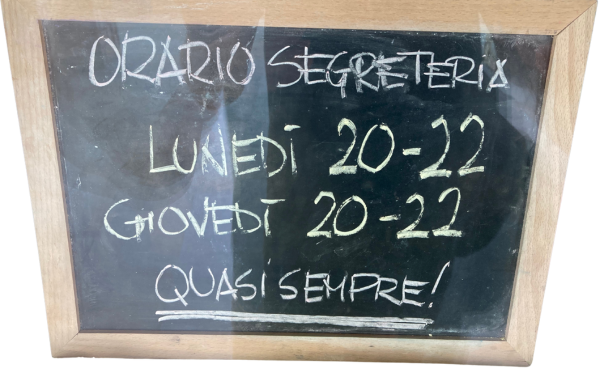 ORARIO SEGRETERIA
LUNEDÌ 20-22
GIOVEDÌ 20-22
QUASI SEMPRE!